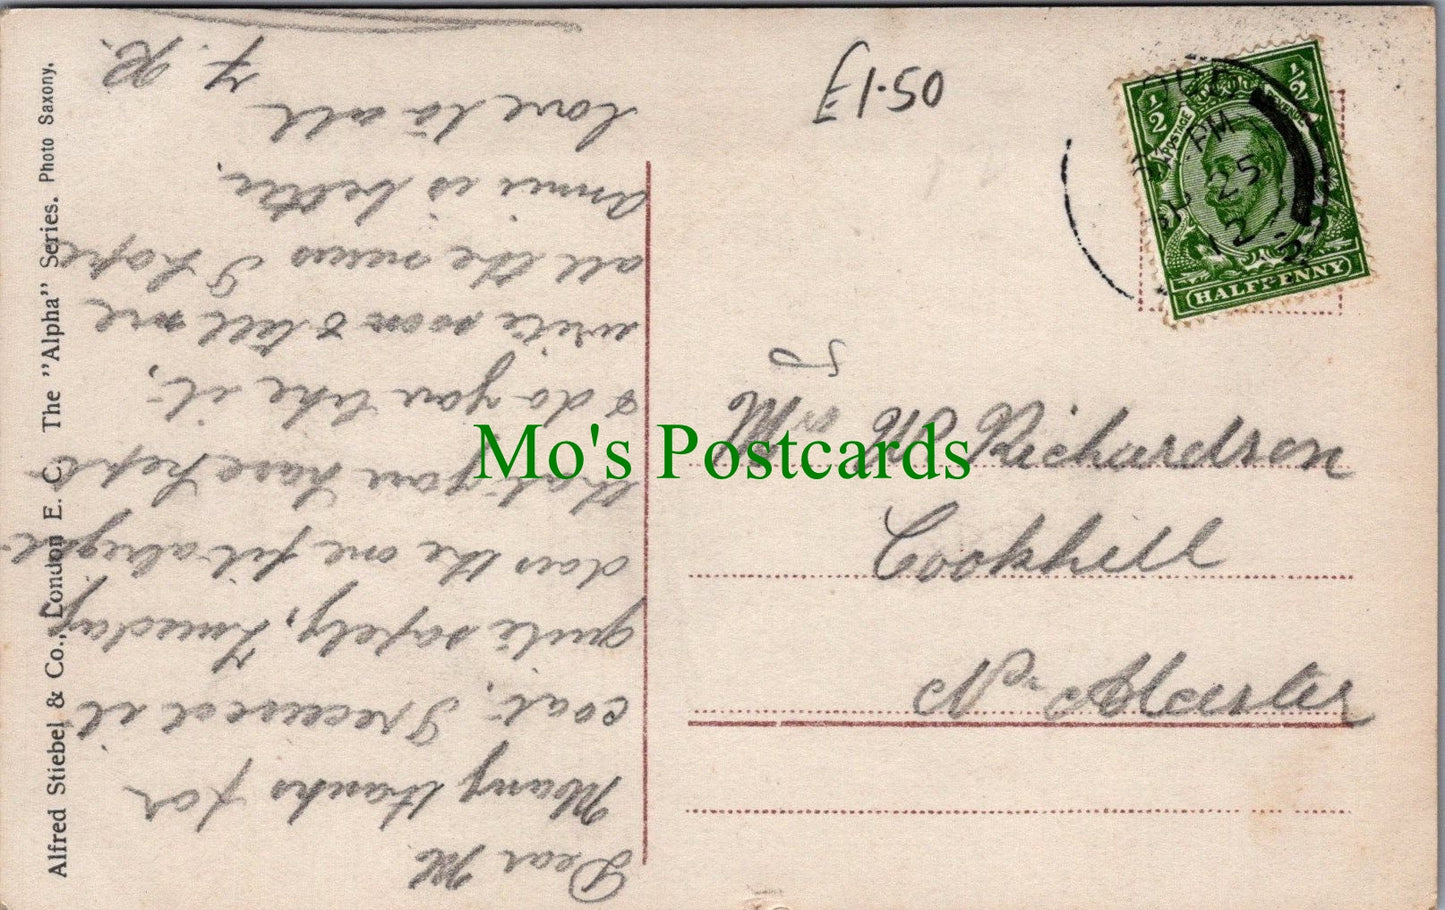 Alfred Stiebel & Co., London E. C. The "Alpha" Series. Photo Saxony.
Dear M.
Many thanks for
coat, I received it
quite safely, Tuesday
does the one fit alright
that you have kept
& do you like it,
write soon & tell me
all the news I hope
Annie is better.
love to all
F. R.
£1-50
½ ½
POSTAGE
HALFPENNY
PM
25
12
To
Mrs W Richardson
Cookhill
Nr Alcester
Mo's Postcards